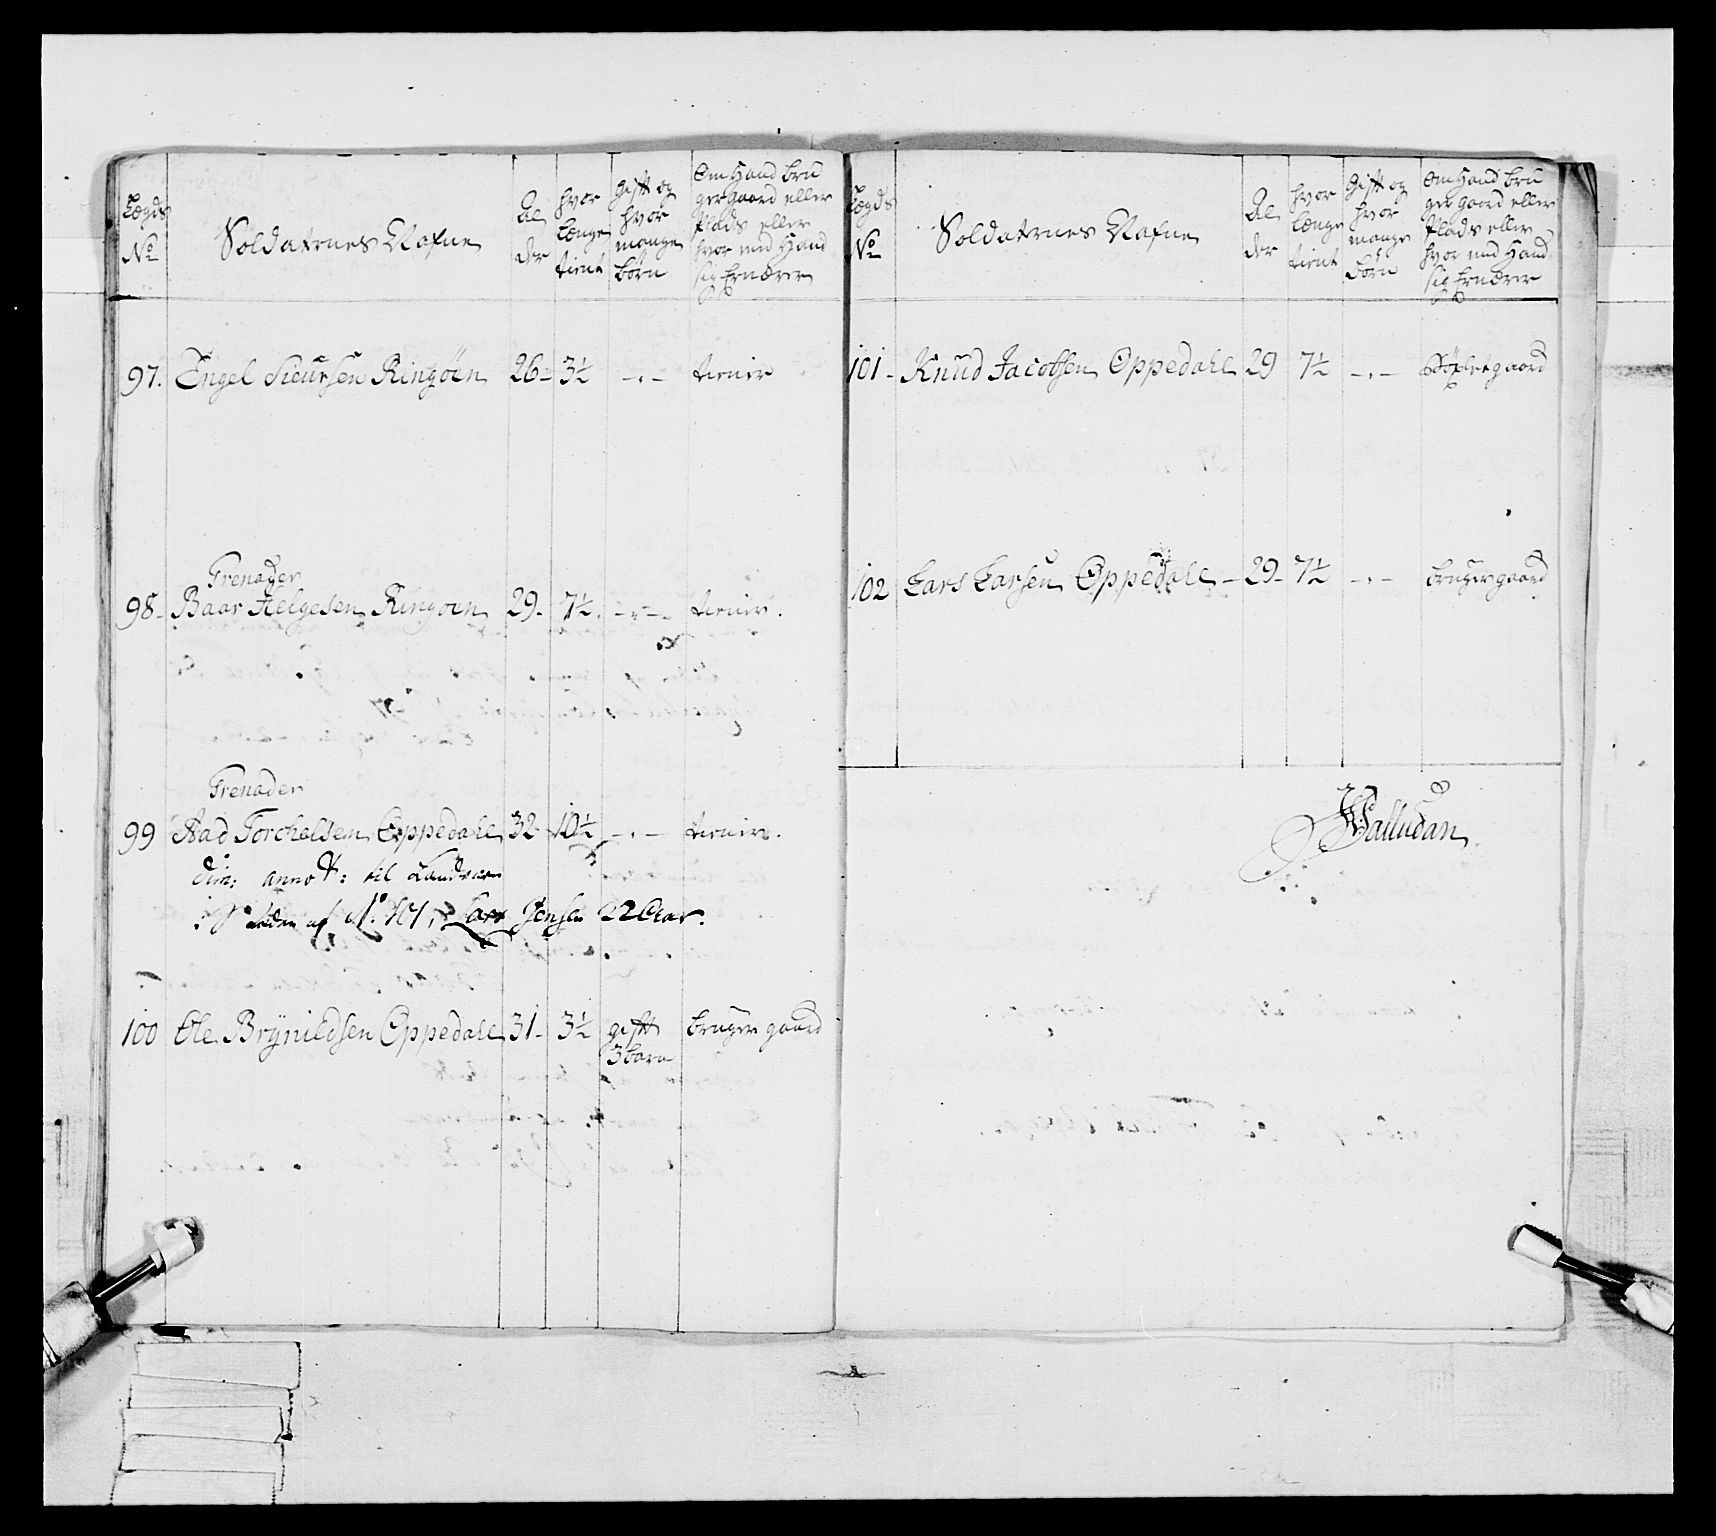 Lægds No
Soldaternes Nafne
Al der
hvor længe tient
gift og hvor mange børn
Om Hand bru ger gaard eller Plads eller hvor med Hand sig Ernærer
97. Engel Siversen Ringøen 26- 3½ -.- tienir
Grenader
98- Baar Helgesen Ringøen 29- 7½. -.- tienir.
Grenader
99 Aad Torchelsen Oppedahl 32- 10½ -.- tienir.
dim: annot: til Landvær
i Steden af No. 101, Lars Jensen 22 Aar.
100 Ole Brÿnildsen Oppedahl 31- 3½ gift 3 born bruger gaard
Lægds No
Soldaternes Nafne
Al der
hvor længe tient
Gift og hvor mange børn
Om Hand bru ger gaard eller Plads eller hvor med Hand sig Ernærer
101- Knud Jacobsen Oppedahl 29 7½ -.- gaard
102 Lars Larsen Oppedahl- 29- 7½ -.- bruger gaard
Palludan